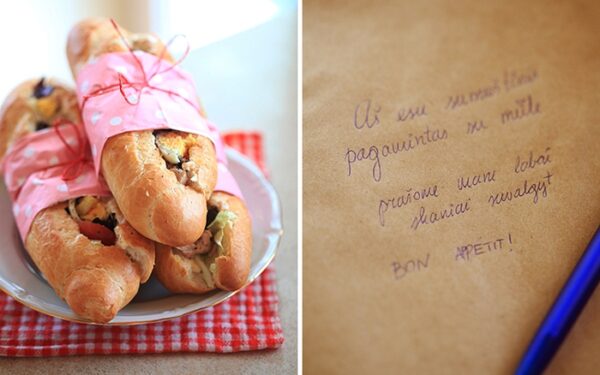 Aš esu sumuštinis
pagamintas su meile
prašome mane labai
skaniai suvalgyt
BON APPÉTIT!